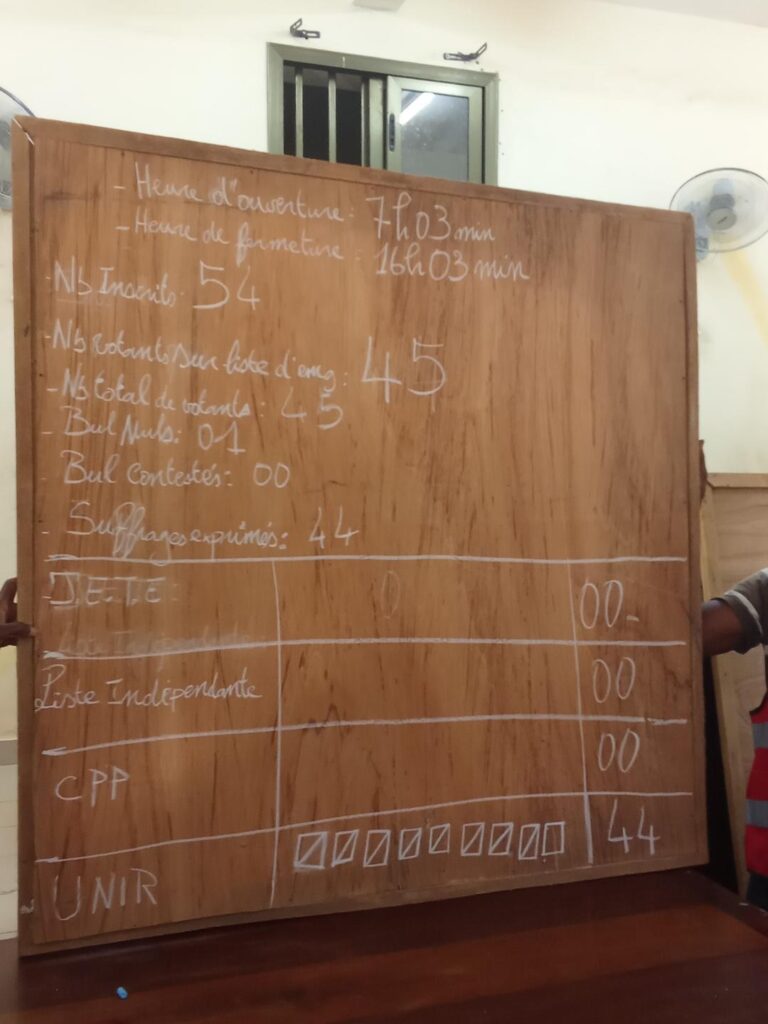 - Heure d'ouverture : 7h03min
- Heure de fermeture : 16h03min
- Nb Inscrits : 54
- Nb votants sur liste d'emg : 45
- Nb total de votants : 45
- Bul Nuls : 01
- Bul contestés : 00
- Suffrages exprimés : 44
00-
Liste Indépendante 00
CPP 00
UNIR 44